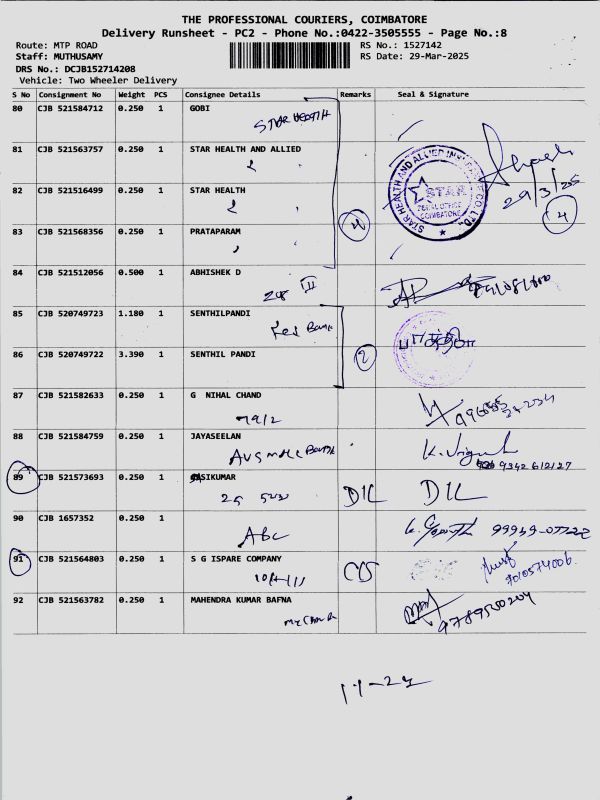 THE PROFESSIONAL COURIERS, COIMBATORE
Delivery Runsheet - PC2 - Phone No.:0422-3505555 - Page No.:8
Route: MTP ROAD
RS No.: 1527142
Staff: MUTHUSAMY
RS Date: 29-Mar-2025
DRS No.: DCJB152714208
Vehicle: Two Wheeler Delivery
S No Consignment No Weight PCS Consignee Details Remarks Seal & Signature
80 CJB 521584712 0.250 1 GOBI
STAR HEALTH
81 CJB 521563757 0.250 1 STAR HEALTH AND ALLIED
82 CJB 521516499 0.250 1 STAR HEALTH
STAR HEALTH AND ALLIED INSURANCE CO. LTD.
STAR
COIMBATORE
29/3/25
4
4
83 CJB 521568356 0.250 1 PRATAPARAM
84 CJB 521512056 0.500 1 ABHISHEK D
85 CJB 520749723 1.180 1 SENTHILPANDI
86 CJB 520749722 3.390 1 SENTHIL PANDI
2
87 CJB 521582633 0.250 1 G NIHAL CHAND
79/2
88 CJB 521584759 0.250 1 JAYASEELAN
9342612127
89 CJB 521573693 0.250 1 SASIKUMAR
D/L D/L
90 CJB 1657352 0.250 1
ABC
99939-07722
91 CJB 521564803 0.250 1 S G ISPARE COMPANY
92 CJB 521563782 0.250 1 MAHENDRA KUMAR BAFNA
9789500204